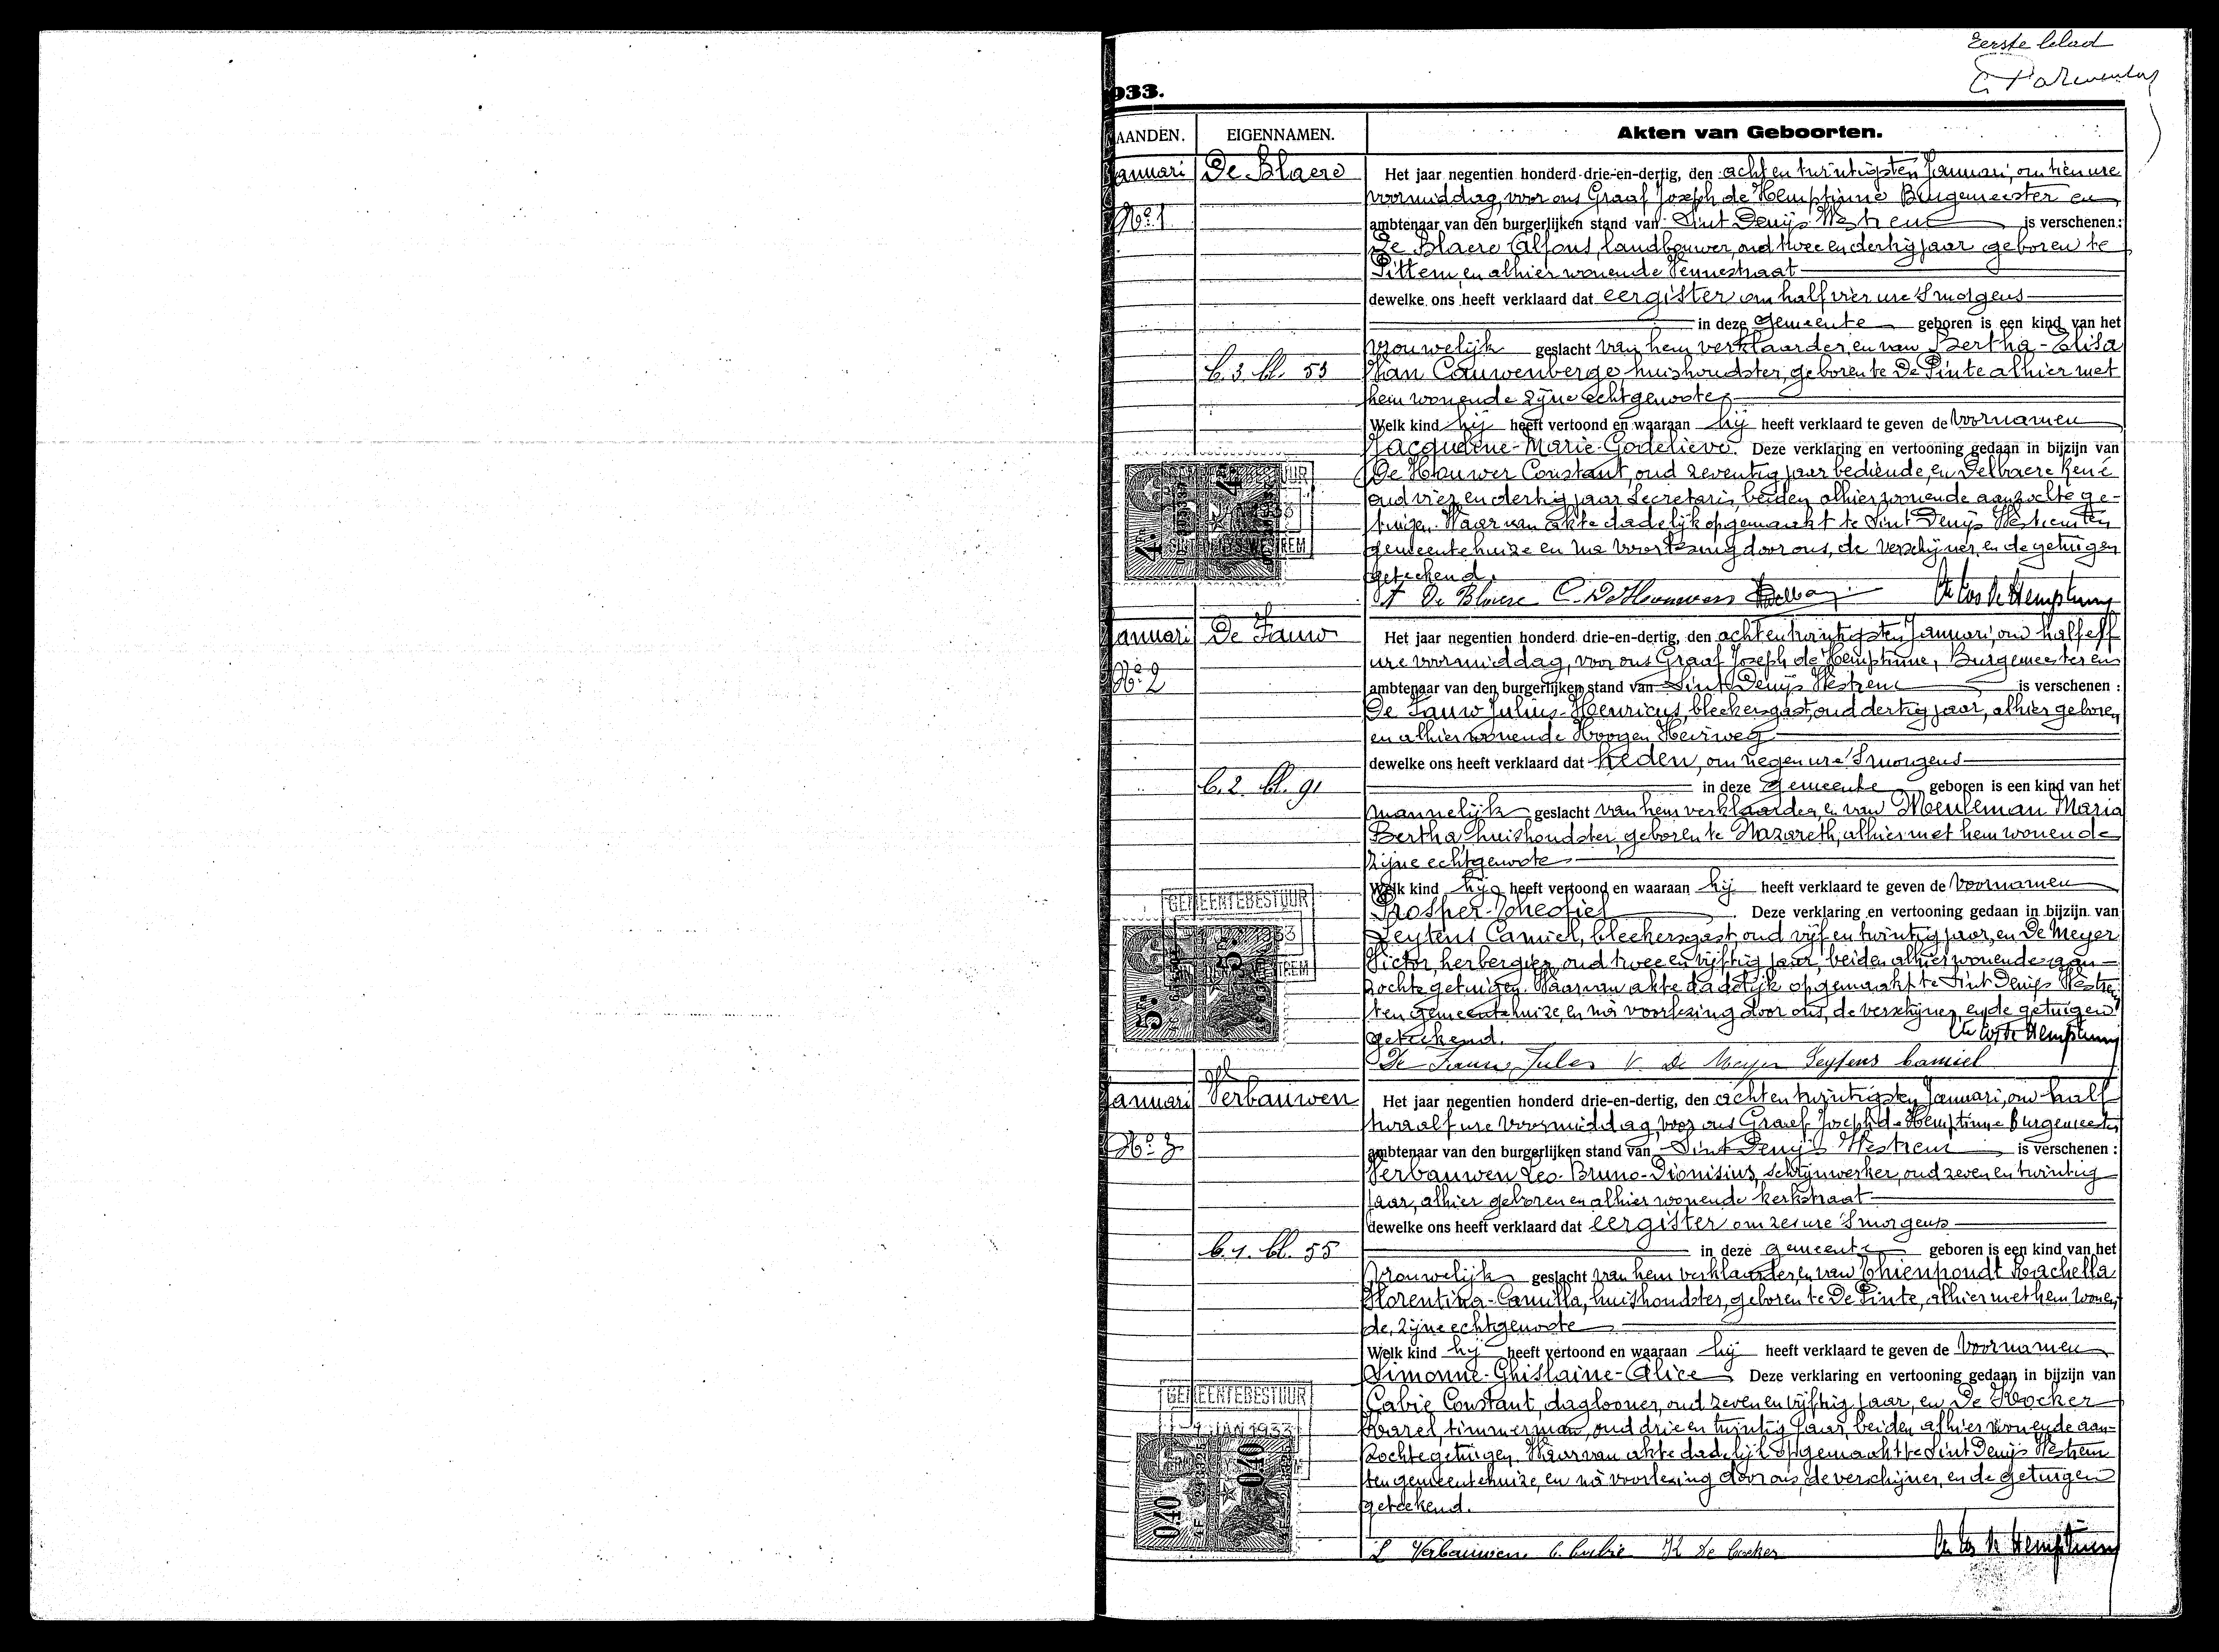 Eerste blad
933.
AANDEN. EIGENNAMEN. Akten van Geboorten.
Januari De Blaere Het jaar negentien honderd drie-en-dertig, den acht en twintigsten Januari, om tien ure
voormiddag, voor ons Graaf Joseph de Hemptinne Burgemeester en
No 1 ambtenaar van den burgerlijken stand van Sint Denijs Westrem is verschenen:
De Blaere Alfons, landbouwer, oud twee en dertig jaar geboren te
Pittem, en alhier wonende Veurnestraat
dewelke ons heeft verklaard dat eergister om half vier ure 's morgens
in deze gemeente geboren is een kind van het
vrouwelijk geslacht van hem verklaarder, en van Bertha-Elisa
b. 3. bl. 53 Van Cauwenberge huishoudster, geboren te De Pinte alhier met
hem wonende zijne echtgenoote
Welk kind hij heeft vertoond en waaraan hij heeft verklaard te geven de voornamen
Jacqueline-Marie-Godelieve. Deze verklaring en vertooning gedaan in bijzijn van
De Hauwer Constant, oud zeventig jaar bediende, en Delbaere René
oud vier en dertig jaar Secretaris, beiden alhier wonende aanzochte ge-
tuigen. Waarvan akte dadelijk opgemaakt te Sint Denijs Westrem ten
gemeentehuize en na voorlezing door ons, de verschijner, en de getuigen
geteekend.
A De Blaere C. De Hauwer
Januari De Fauw Het jaar negentien honderd drie-en-dertig, den acht en twintigsten Januari, om half elf
ure voormiddag, voor ons Graaf Joseph de Hemptinne, Burgemeester en
No 2 ambtenaar van den burgerlijken stand van Sint Denijs Westrem is verschenen :
De Fauw Julius-Henricus, bleekersgast, oud dertig jaar, alhier geboren
en alhier wonende Hoogen Heirweg
dewelke ons heeft verklaard dat heden, om negen ure 's morgens
b. 2. bl. 91 in deze gemeente geboren is een kind van het
mannelijk geslacht van hem verklaarder, en van Meuleman Maria
Bertha, huishoudster, geboren te Nazareth, alhier met hem wonende
zijne echtgenoote
Welk kind hij heeft vertoond en waaraan hij heeft verklaard te geven de voornamen
GEMEENTEBESTUUR
Prosper-Theofiel Deze verklaring en vertooning gedaan in bijzijn van
Leytens Camiel, bleekersgast, oud vijf en twintig jaar, en De Meyer
Victor, herbergier, oud twee en vijftig jaar, beiden alhier wonende aan-
zochte getuigen. Waarvan akte dadelijk opgemaakt te Sint Denijs Westrem
ten gemeentehuize, en na voorlezing door ons, de verschijner, en de getuigen
geteekend.
De Fauw Jules V. De Meyer Leytens Camiel
Januari Verbauwen Het jaar negentien honderd drie-en-dertig, den acht en twintigsten Januari, om half
twaalf ure voormiddag, voor ons Graaf Joseph de Hemptinne Burgemeester
No 3 ambtenaar van den burgerlijken stand van Sint Denijs Westrem is verschenen :
Verbauwen Leo-Bruno-Dionisius, schrijnwerker, oud zeven en twintig
jaar, alhier geboren en alhier wonende kerkstraat
dewelke ons heeft verklaard dat eergister om zes ure 's morgens
b. 1. bl. 55 in deze gemeente geboren is een kind van het
vrouwelijk geslacht van hem verklaarder, en van Thienpondt Rachella
Florentina-Camilla, huishoudster, geboren te De Pinte, alhier met hem wonen-
de, zijne echtgenoote
Welk kind hij heeft vertoond en waaraan hij heeft verklaard te geven de voornamen
Simonne-Ghislaine-Alice Deze verklaring en vertooning gedaan in bijzijn van
GEMEENTEBESTUUR
Cabie Constant, daglooner, oud zeven en vijftig jaar, en De Kocker
Karel, timmerman, oud drie en twintig jaar, beiden alhier wonende aan-
zochte getuigen. Waarvan akte dadelijk opgemaakt te Sint Denijs Westrem
ten gemeentehuize, en na voorlezing door ons, de verschijner, en de getuigen
0.40 0.40
geteekend.
L Verbauwen C. Cabie K De Cocker